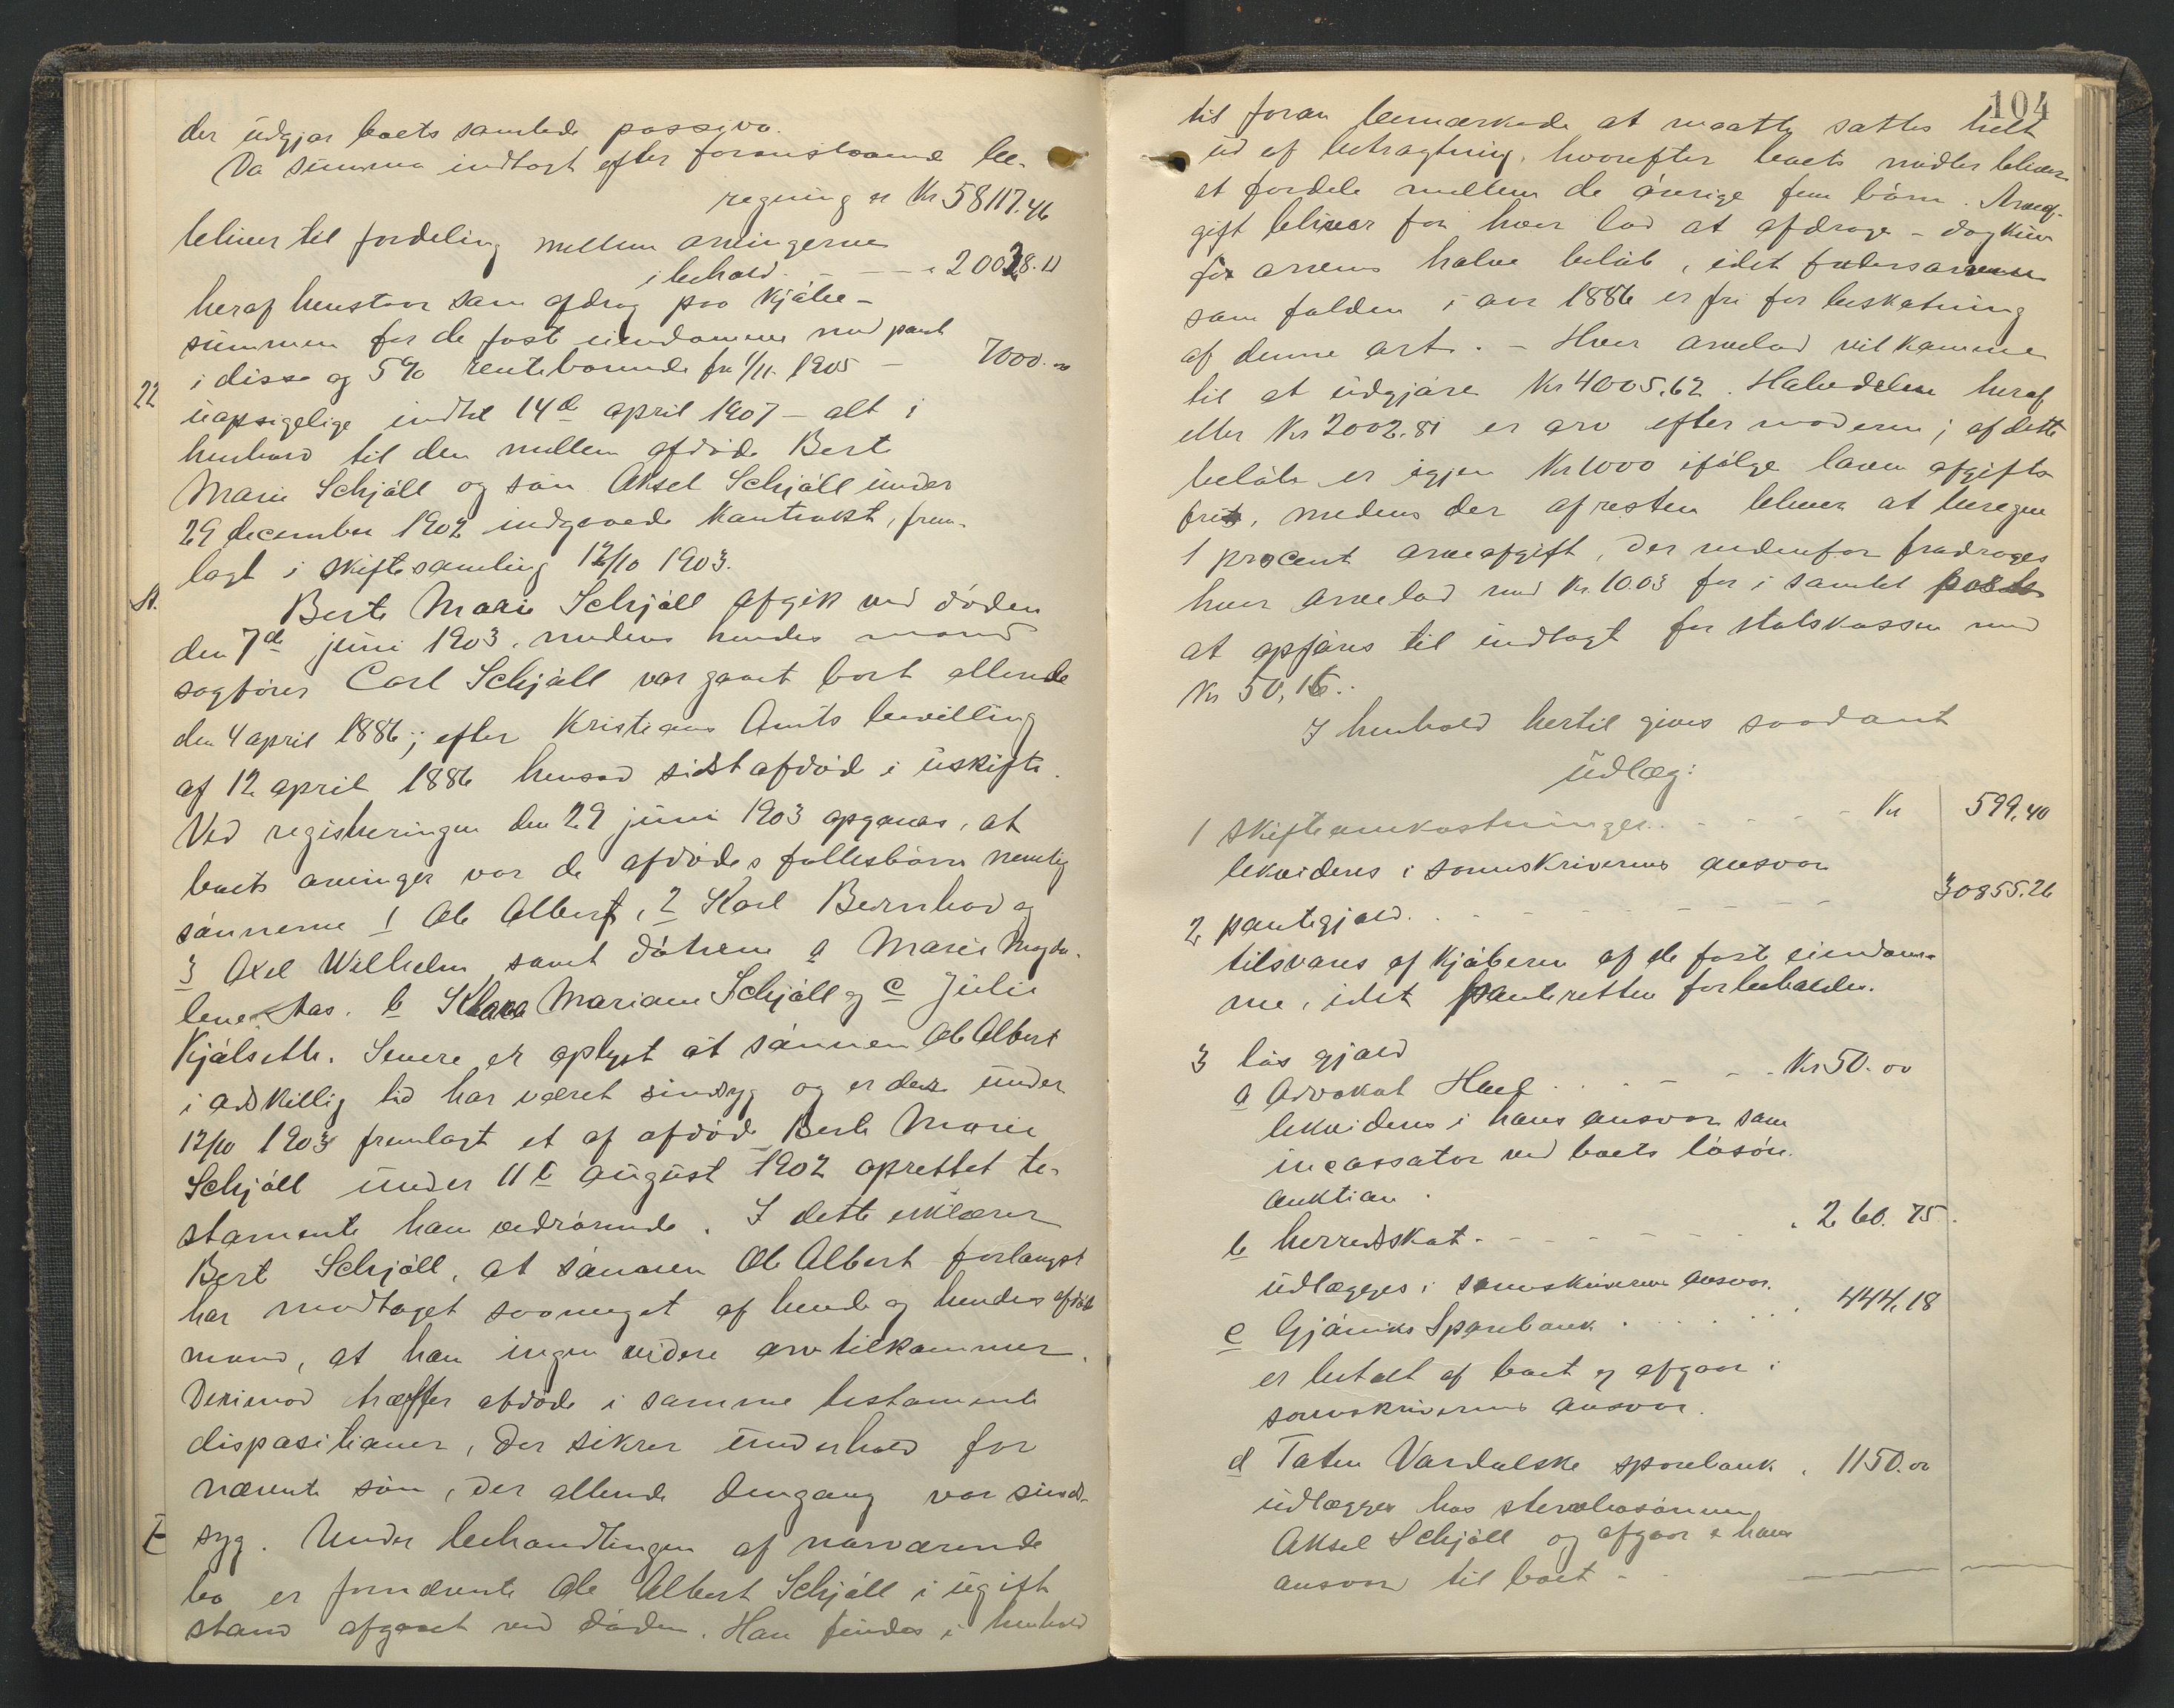 der udgjør boets samlede passiva.
Da summa indtægt efter foranstaaende be-
regning er Kr 58117.46
bliver til fordeling mellem arvingerne
i behold. - - - - " 20028.11
heraf henstaar som afdrag paa kjøbe-
summen for de faste eiendomme med pant
i disse og 5% rentebærende fra 1/11 1905 - 7000.00
22
uopsigelige indtil 14de april 1907 - alt i
henhold til den mellem afdøde Berte
Marie Schjøll og søn Aksel Schjøll under
29 december 1902 indgaaede kontrakt, frem-
lagt i skiftesamling 12/10 1903.
Berte Marie Schjøll afgik ved døden
den 7de juni 1903, medens hendes mand
sagfører Carl Schjøll var gaaet bort allerede
den 4 april 1886; efter Kristians Amts bevilling
af 12 april 1886 hensad sidst afdøde i uskifte.
Ved registreringen den 29 juni 1903 opgaves, at
boets arvinger var de afdødes fællesbørn nemlig
sønnerne 1 Ole Albert, 2 Karl Bernhard og
3 Axel Wilhelm samt døtrene a Marie Magda-
lene Aas. b Klara Mariane Schjøll og c Julie
Kjølseth. Senere er oplyst at sønnen Ole Albert
i adskillig tid har været sindsyg og er der under
12/10 1903 fremlagt et af afdøde Berte Marie
Schjøll under 11te august 1902 oprettet te-
stamente ham vedrørende. I dette erklærer
Berte Schjøll, at sønnen Ole Albert forlængst
har modtaget saameget af hende og hendes afdøde
mand, at han ingen videre arv tilkommer.
Derimod træffer afdøde i samme testamente
dispositioner, der sikrer underhold for
nævnte søn, der allerede dengang var sind-
syg. Under behandlingen af nærværende
bo er fornævnte Ole Albert Schjøll i ugift
stand afgaaet ved døden. Han findes i henhold
104
til foran bemærkede at maatte sættes helt
ud af betragtning, hvorefter boets midler bliver
at fordele mellem de øvrige fem børn. Arveaf-
gift bliver for hver lod at afdrage - dog kun
for arvens halve beløb, idet fædrearven
som falden i aar 1886 er fri for beskatning
af denne art. - Hver arvelod vil komme
til at udgjøre Kr 4005.62. Halvdelen heraf
eller Kr 2002.81 er arv efter moderen; af dette
beløb er igjen Kr 1000 ifølge loven afgifts-
frit, medens der af resten bliver at beregne
1 procent arveafgift, der nedenfor fradrages
hver arvelod med Kr. 10.03 for i samlet post
at opføres til indtægt for statskassen med
Kr 50,15.
I henhold hertil gives saadant
udlæg:
1 skifteomkostninger. - - - - Kr 599,40
likvideres i sorenskriverens ansvar
2 pantegjæld. - - - - - - - 30855.26
tilsvares af kjøberen af de faste eiendom-
me, idet panteretten forbeholdes.
3 løs gjæld
a Advokat Hoel - - - Kr 50.00
likvideres i hans ansvar som
incassator ved boets løsøre-
auktion.
b herredskat - - - - - - " 260.75
udlægges i sorenskriverens ansvar.
c Gjøviks Sparebank . . . . . 444.18
er betalt af boet og afgaar i
sorenskriverens ansvar.
d Toten Vardalske sparebank . 1150.00
udlægges hos stervbosønnen
Aksel Schjøll og afgaar i hans
ansvar til boet -